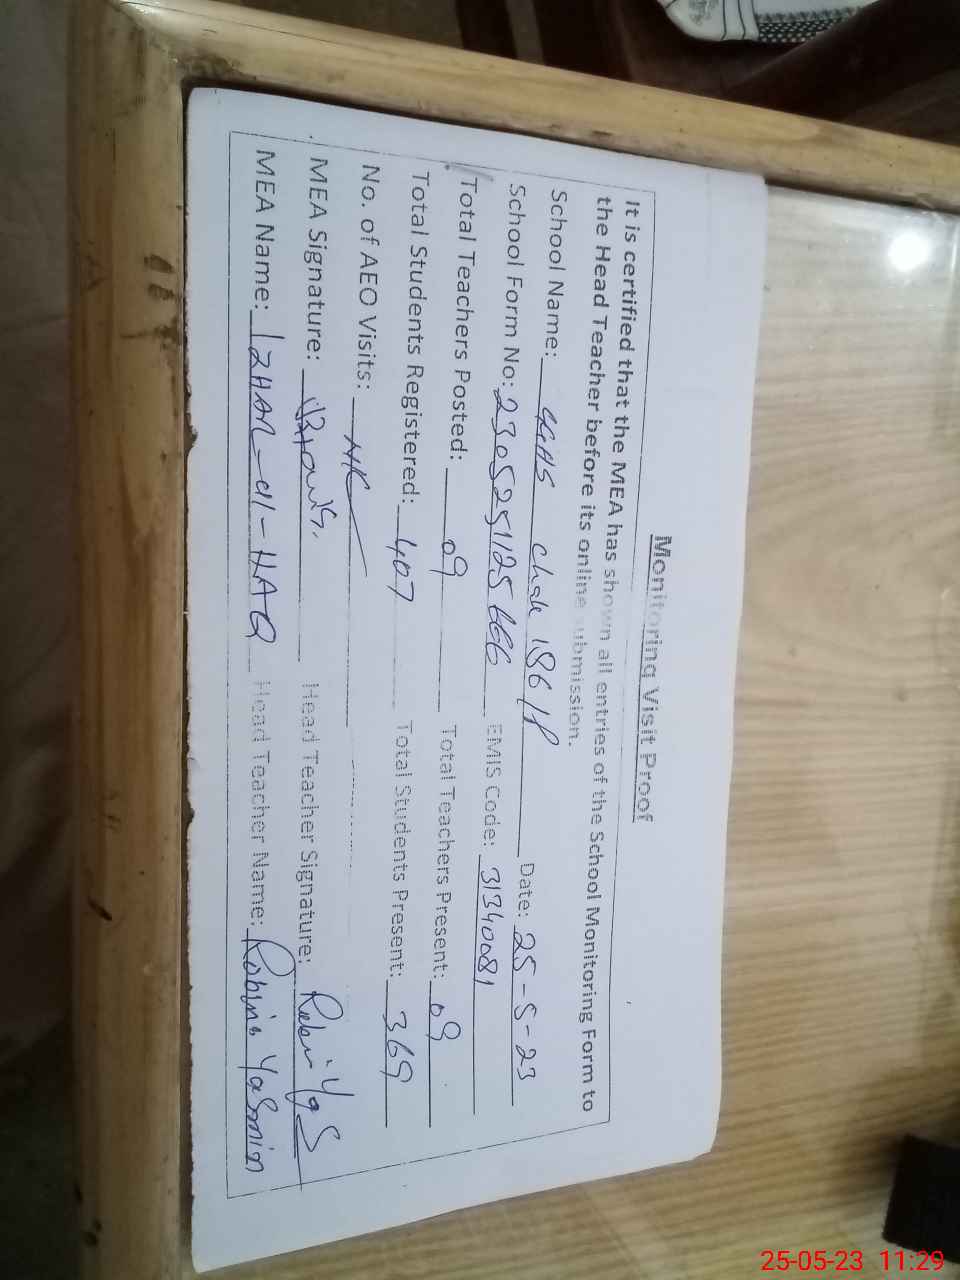 Monitoring Visit Proof
It is certified that the MEA has shown all entries of the School Monitoring Form to
the Head Teacher before its online submission.
School Name: GGHS Chak 186/P Date: 25-5-23
School Form No: EMIS Code: 31340081
Total Teachers Posted: 09 Total Teachers Present: 09
Total Students Registered: 407 Total Students Present: 369
No. of AEO Visits:
MEA Signature: Head Teacher Signature:
MEA Name: IZHAR-ul-HAQ Head Teacher Name: Robina Yasmin
25-05-23 11:29